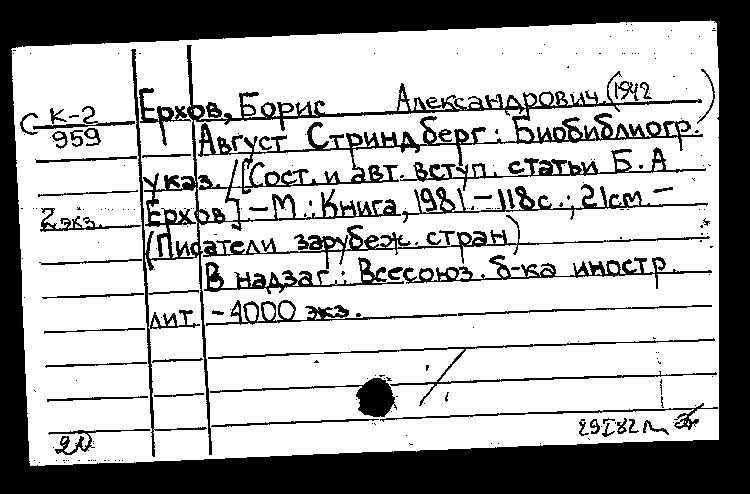 Ерхов, Борис Александрович (1942 )
С К-2
959
Август Стриндберг: Библиогр.
указ. / [Сост. и авт. вступ. статьи Б. А
2 экз. Ерхов] – М.: Книга, 1981. – 118 с.; 21 см. –
(Писатели зарубеж. стран)
В надзаг.: Всесоюз. б-ка иностр.
лит. – 4000 экз.
20